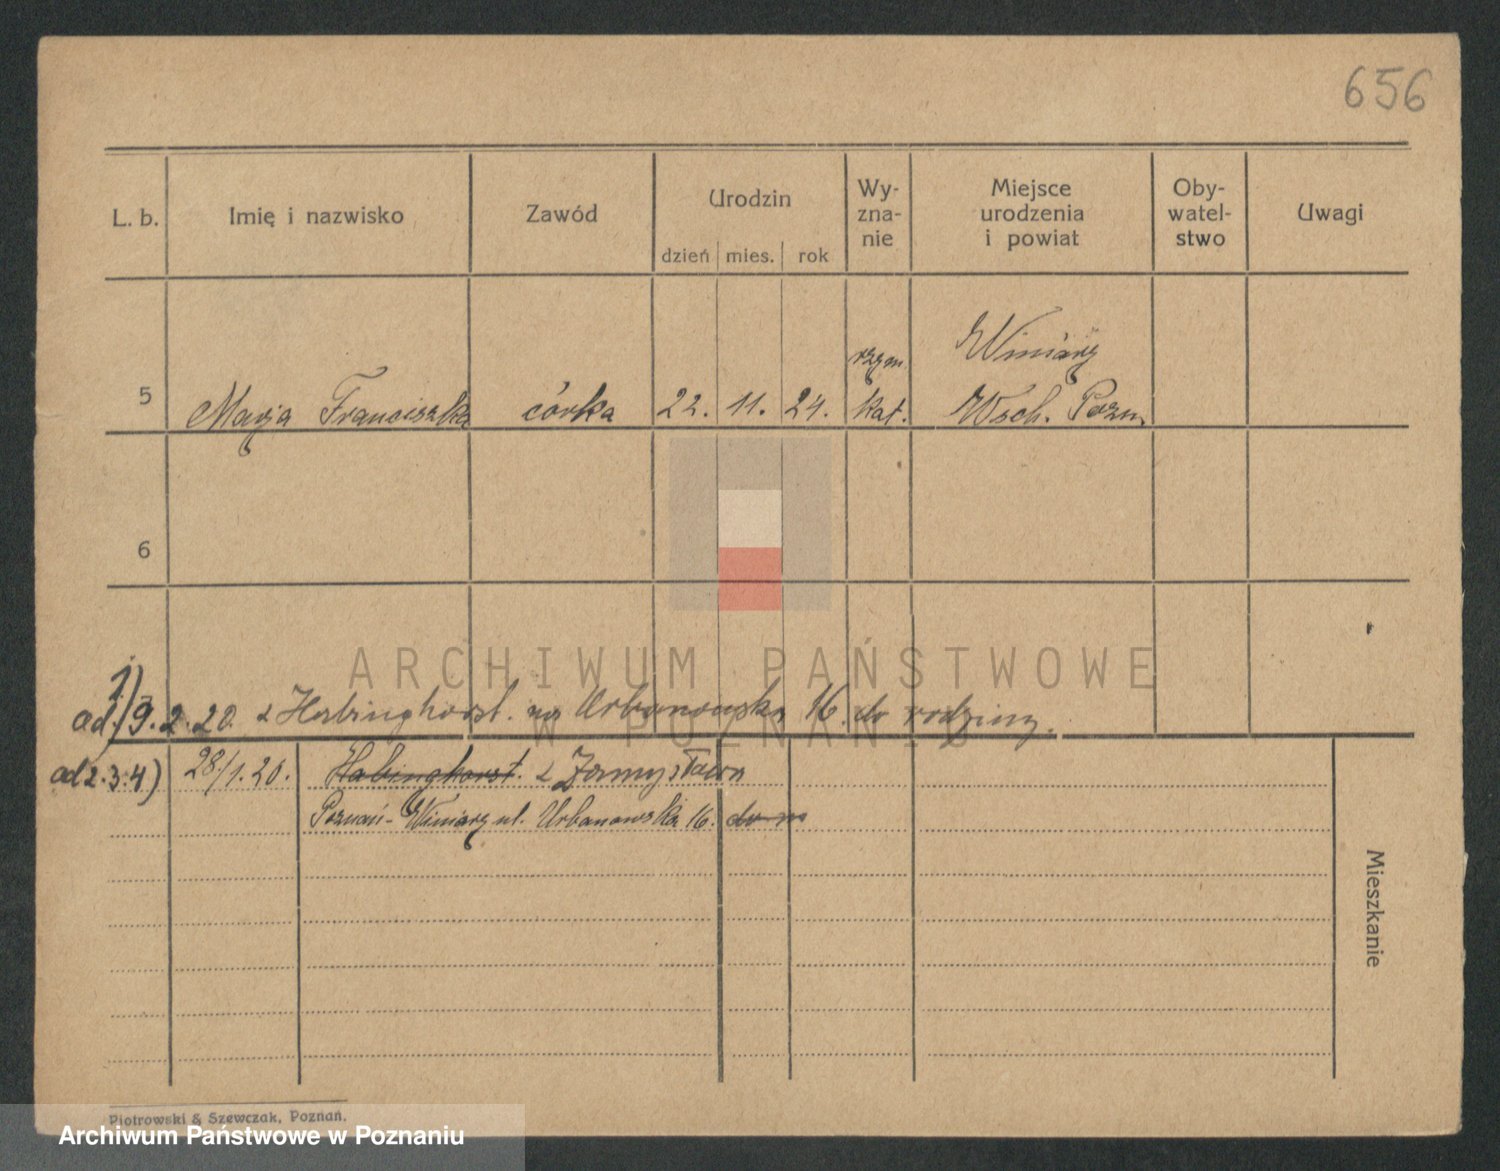 656
L. b. Imię i nazwisko Zawód Urodzin dzień mies. rok Wy-zna-nie Miejsce urodzenia i powiat Oby-watel-stwo Uwagi
Winiary
rzym
5 Marja Franciszka córka 22. 11. 24. kat. Wsch. Pozn.
6
ARCHIWUM PAŃSTWOWE
W POZNANIU
ad. 1) 9.2.20. z Habinghorst. na Urbanowską 16. do rodziny.
ad 2.3.4) 28/1.20. Habinghorst. z Zamysłowa
Poznań-Winiary ul. Urbanowska 16. do
Mieszkanie
Piotrowski & Szewczak, Poznań.
Archiwum Państwowe w Poznaniu